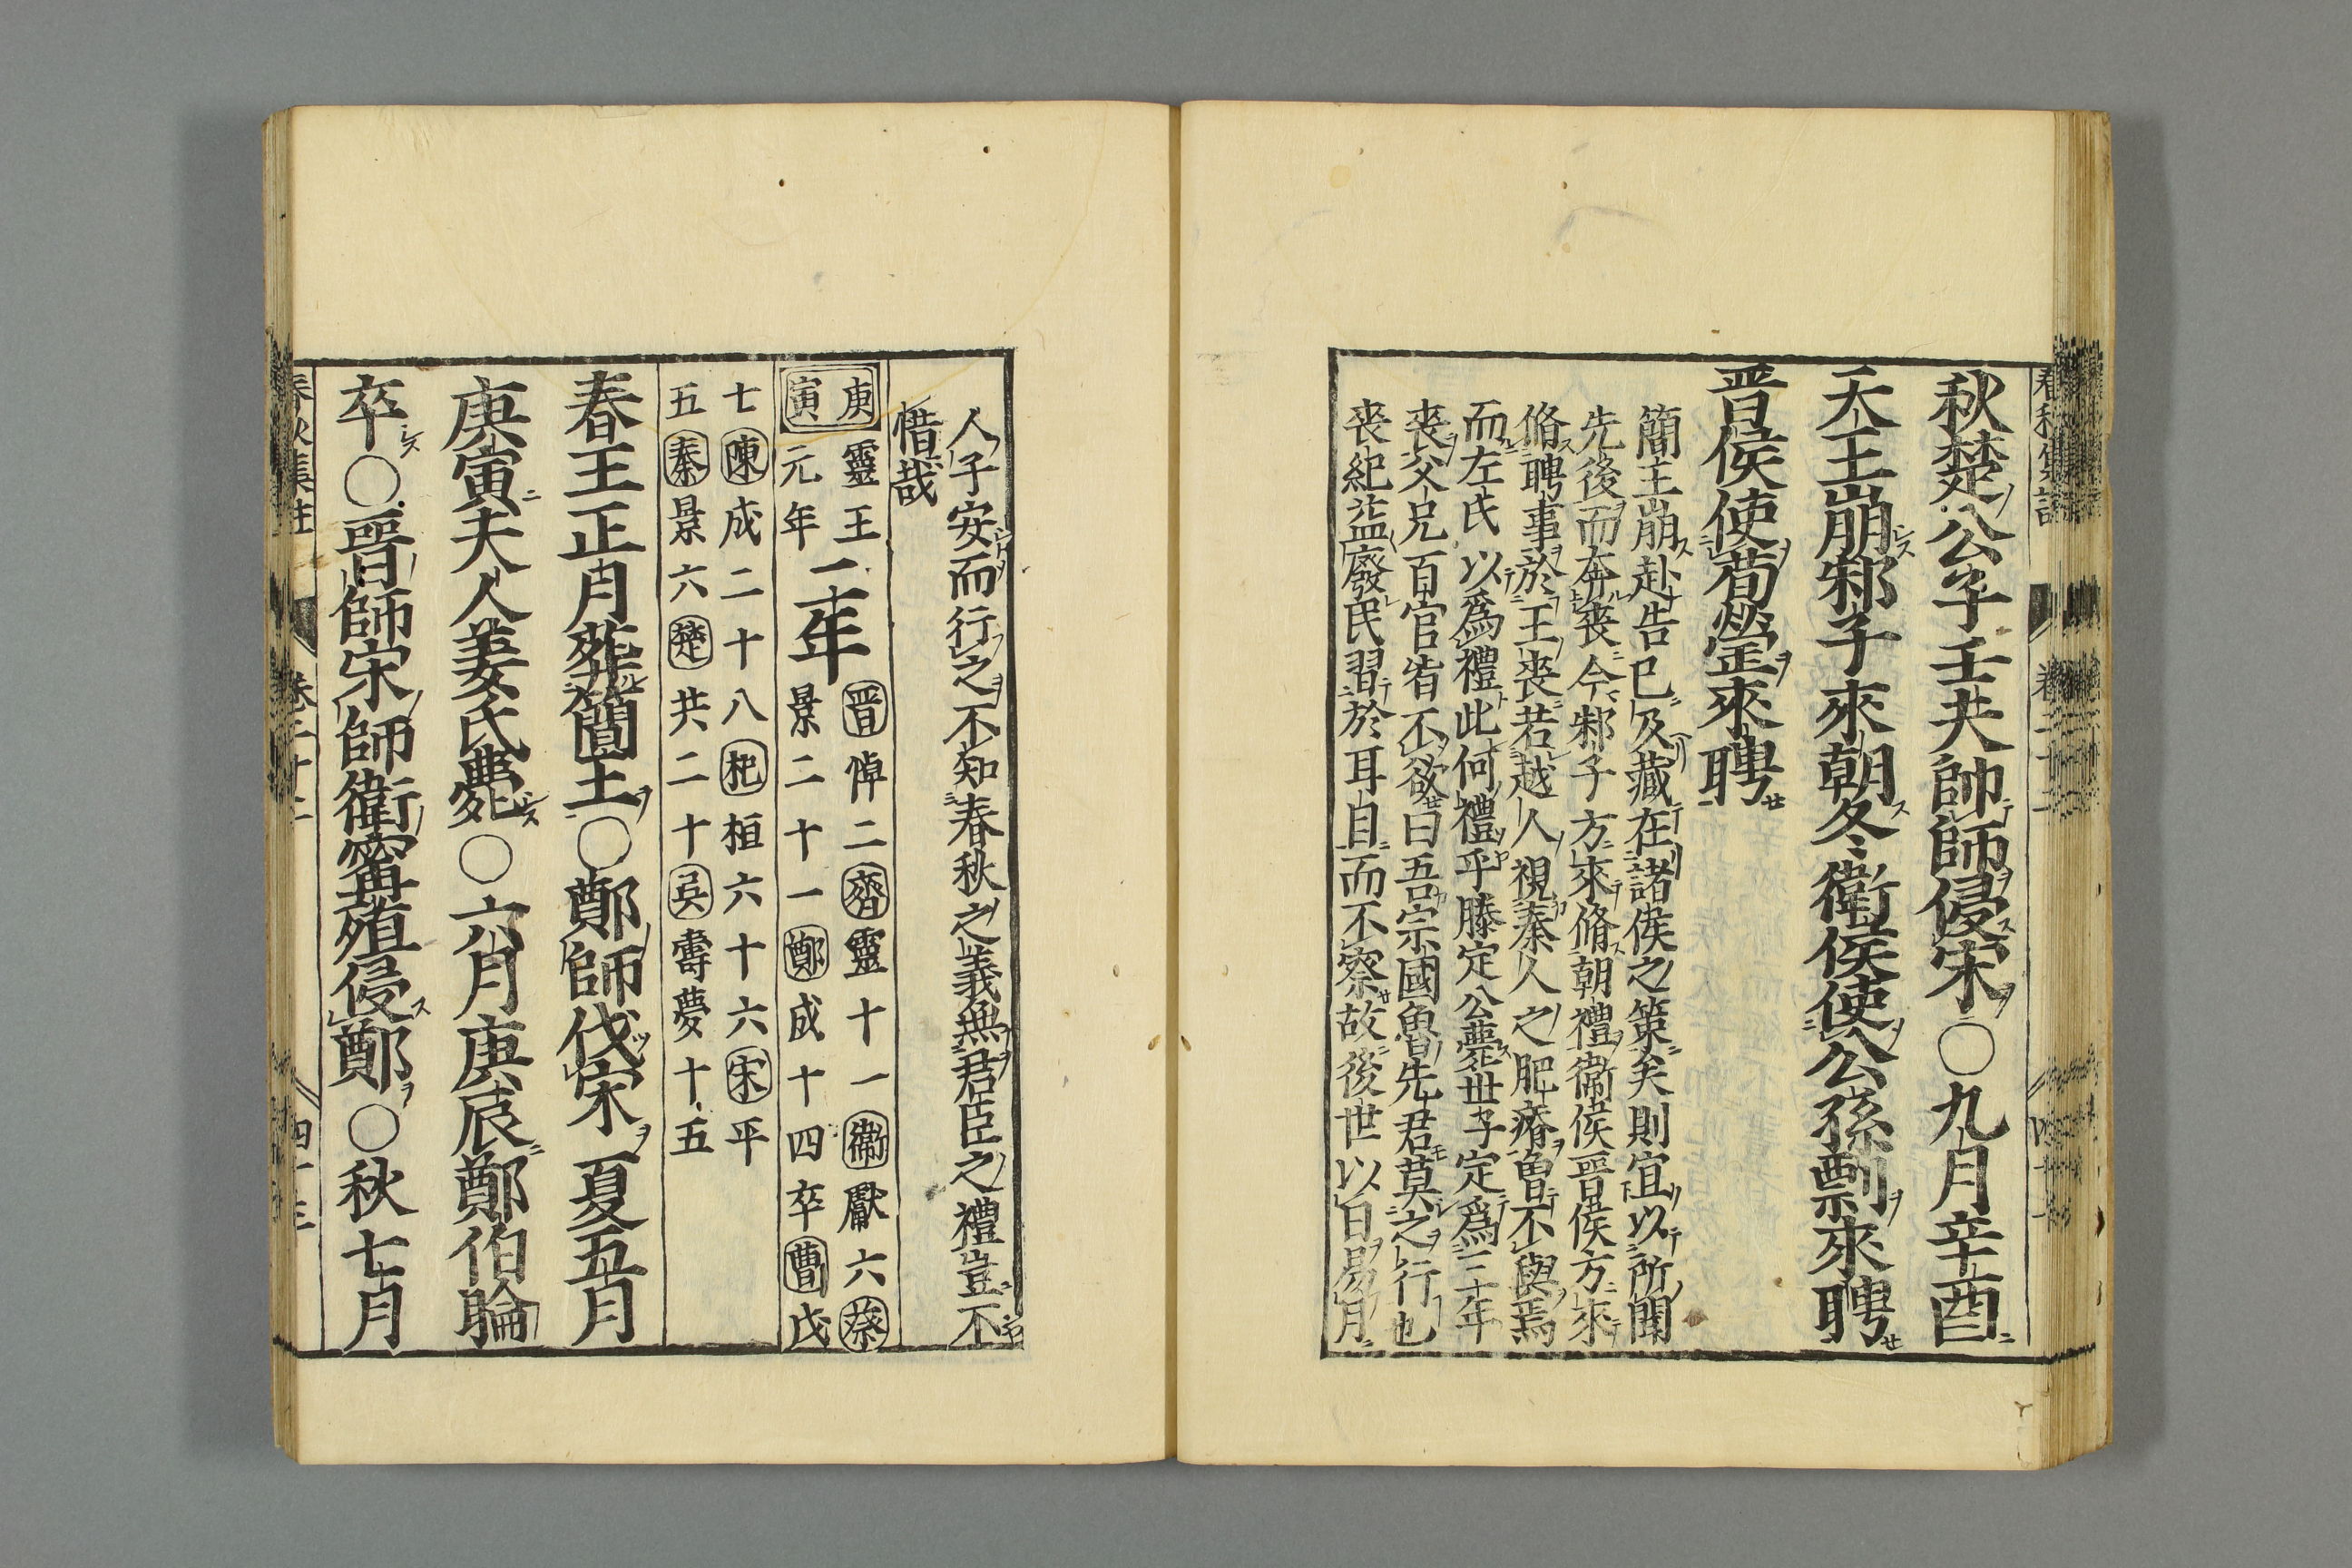 秋楚公子壬夫帥師侵宋○九月辛酉
天王崩邾子來朝冬衛侯使公孫剽來聘
晋侯使荀罃來聘
簡王崩赴告已及藏在諸侯之策矣則宜以所聞
先後而奔喪今邾子方來脩朝禮衞侯晋侯方來
脩聘事於王喪若越人視秦人之肥瘠曾不與焉
而左氏以爲禮此何禮乎滕定公薨世子定爲三年
喪父兄百官皆不欲曰吾宗國魯先君莫之行也
喪紀益廢民習於耳目而不察故後世以日易月
人子安而行之不知春秋之義無君臣之禮豈不
惜哉
庚寅
靈王
元年
二年
晋悼二齊靈十一衞獻六蔡
景二十一鄭成十四卒曹成
七陳成二十八杞桓六十六宋平
五秦景六楚共二十吳壽夢十五
春王正月葬簡王○鄭師伐宋夏五月
庚寅夫人姜氏薨○六月庚辰鄭伯睔
卒○晋師宋師衛甯殖侵鄭○秋七月
春秋集註
卷二十二
四十三